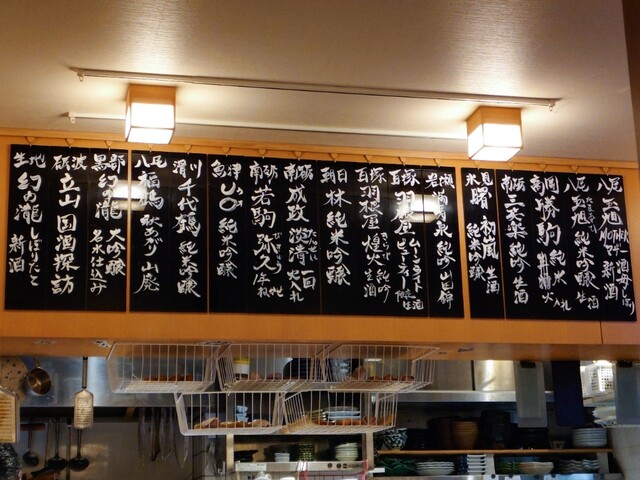 八尾 玉旭 MOTHER 酒母しぼり 新酒
八尾 玉旭 純米吟醸 生酒
高岡 勝駒 純米 火入れ
南砺 三笑楽 純吟 生酒
氷見 曙 初嵐 純米吟醸 生酒
岩瀬 満寿泉 純吟 山田錦
百塚 羽根屋 ムーンライトビューティー 生酒
百塚 羽根屋 煌火 純吟 生酒
朝日 林 純米吟醸
南砺 成政 淡清 一回火入れ
南砺 若駒 弥久
魚津 純米吟醸
滑川 千代鶴 純米吟醸
八尾 福鶴 秋あがり 山廃
黒部 幻の瀧 大吟醸 名水仕込み
砺波 立山 国酒探訪
生地 幻の瀧 しぼりたて 新酒